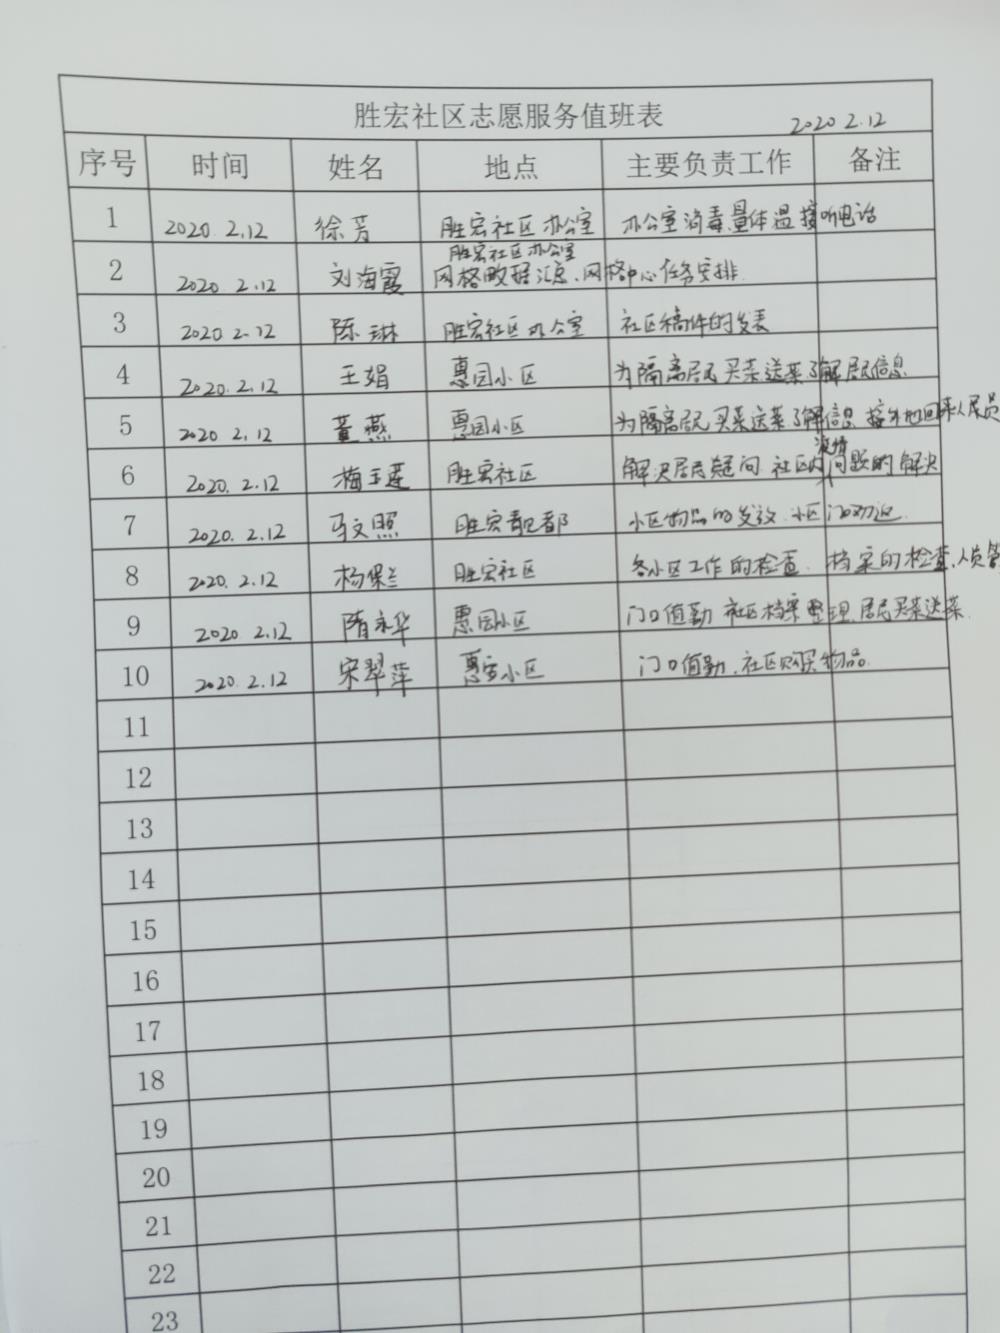 胜宏社区志愿服务值班表
2020 2.12
序号 时间 姓名 地点 主要负责工作 备注
1 2020.2.12 徐芳 胜宏社区办公室 办公室消毒量体温接听电话
胜宏社区办公室
2 2020.2.12 刘海霞 网格数据汇总、网格中心任务安排
3 2020 2.12 陈琳 胜宏社区办公室 社区稿件的发表
4 2020.2.12 王娟 惠园小区 为隔离居民买菜送菜了解居民信息
5 2020 2.12 董燕 惠园小区 为隔离居民买菜送菜了解信息 接外地回来人员
疫情
6 2020.2.12 梅玉莲 胜宏社区 解决居民疑问 社区内问题的解决
7 2020.2.12 马文照 胜宏靓都 小区物品的发放 小区门口劝返
8 2020.2.12 杨保兰 胜宏社区 各小区工作的检查. 档案的检查、人员管
9 2020 2.12 隋永华 惠园小区 门口值勤 社区档案整理、居民买菜送菜.
10 2020.2.12 宋翠萍 惠安小区 门口值勤、社区购买物品
11
12
13
14
15
16
17
18
19
20
21
22
23